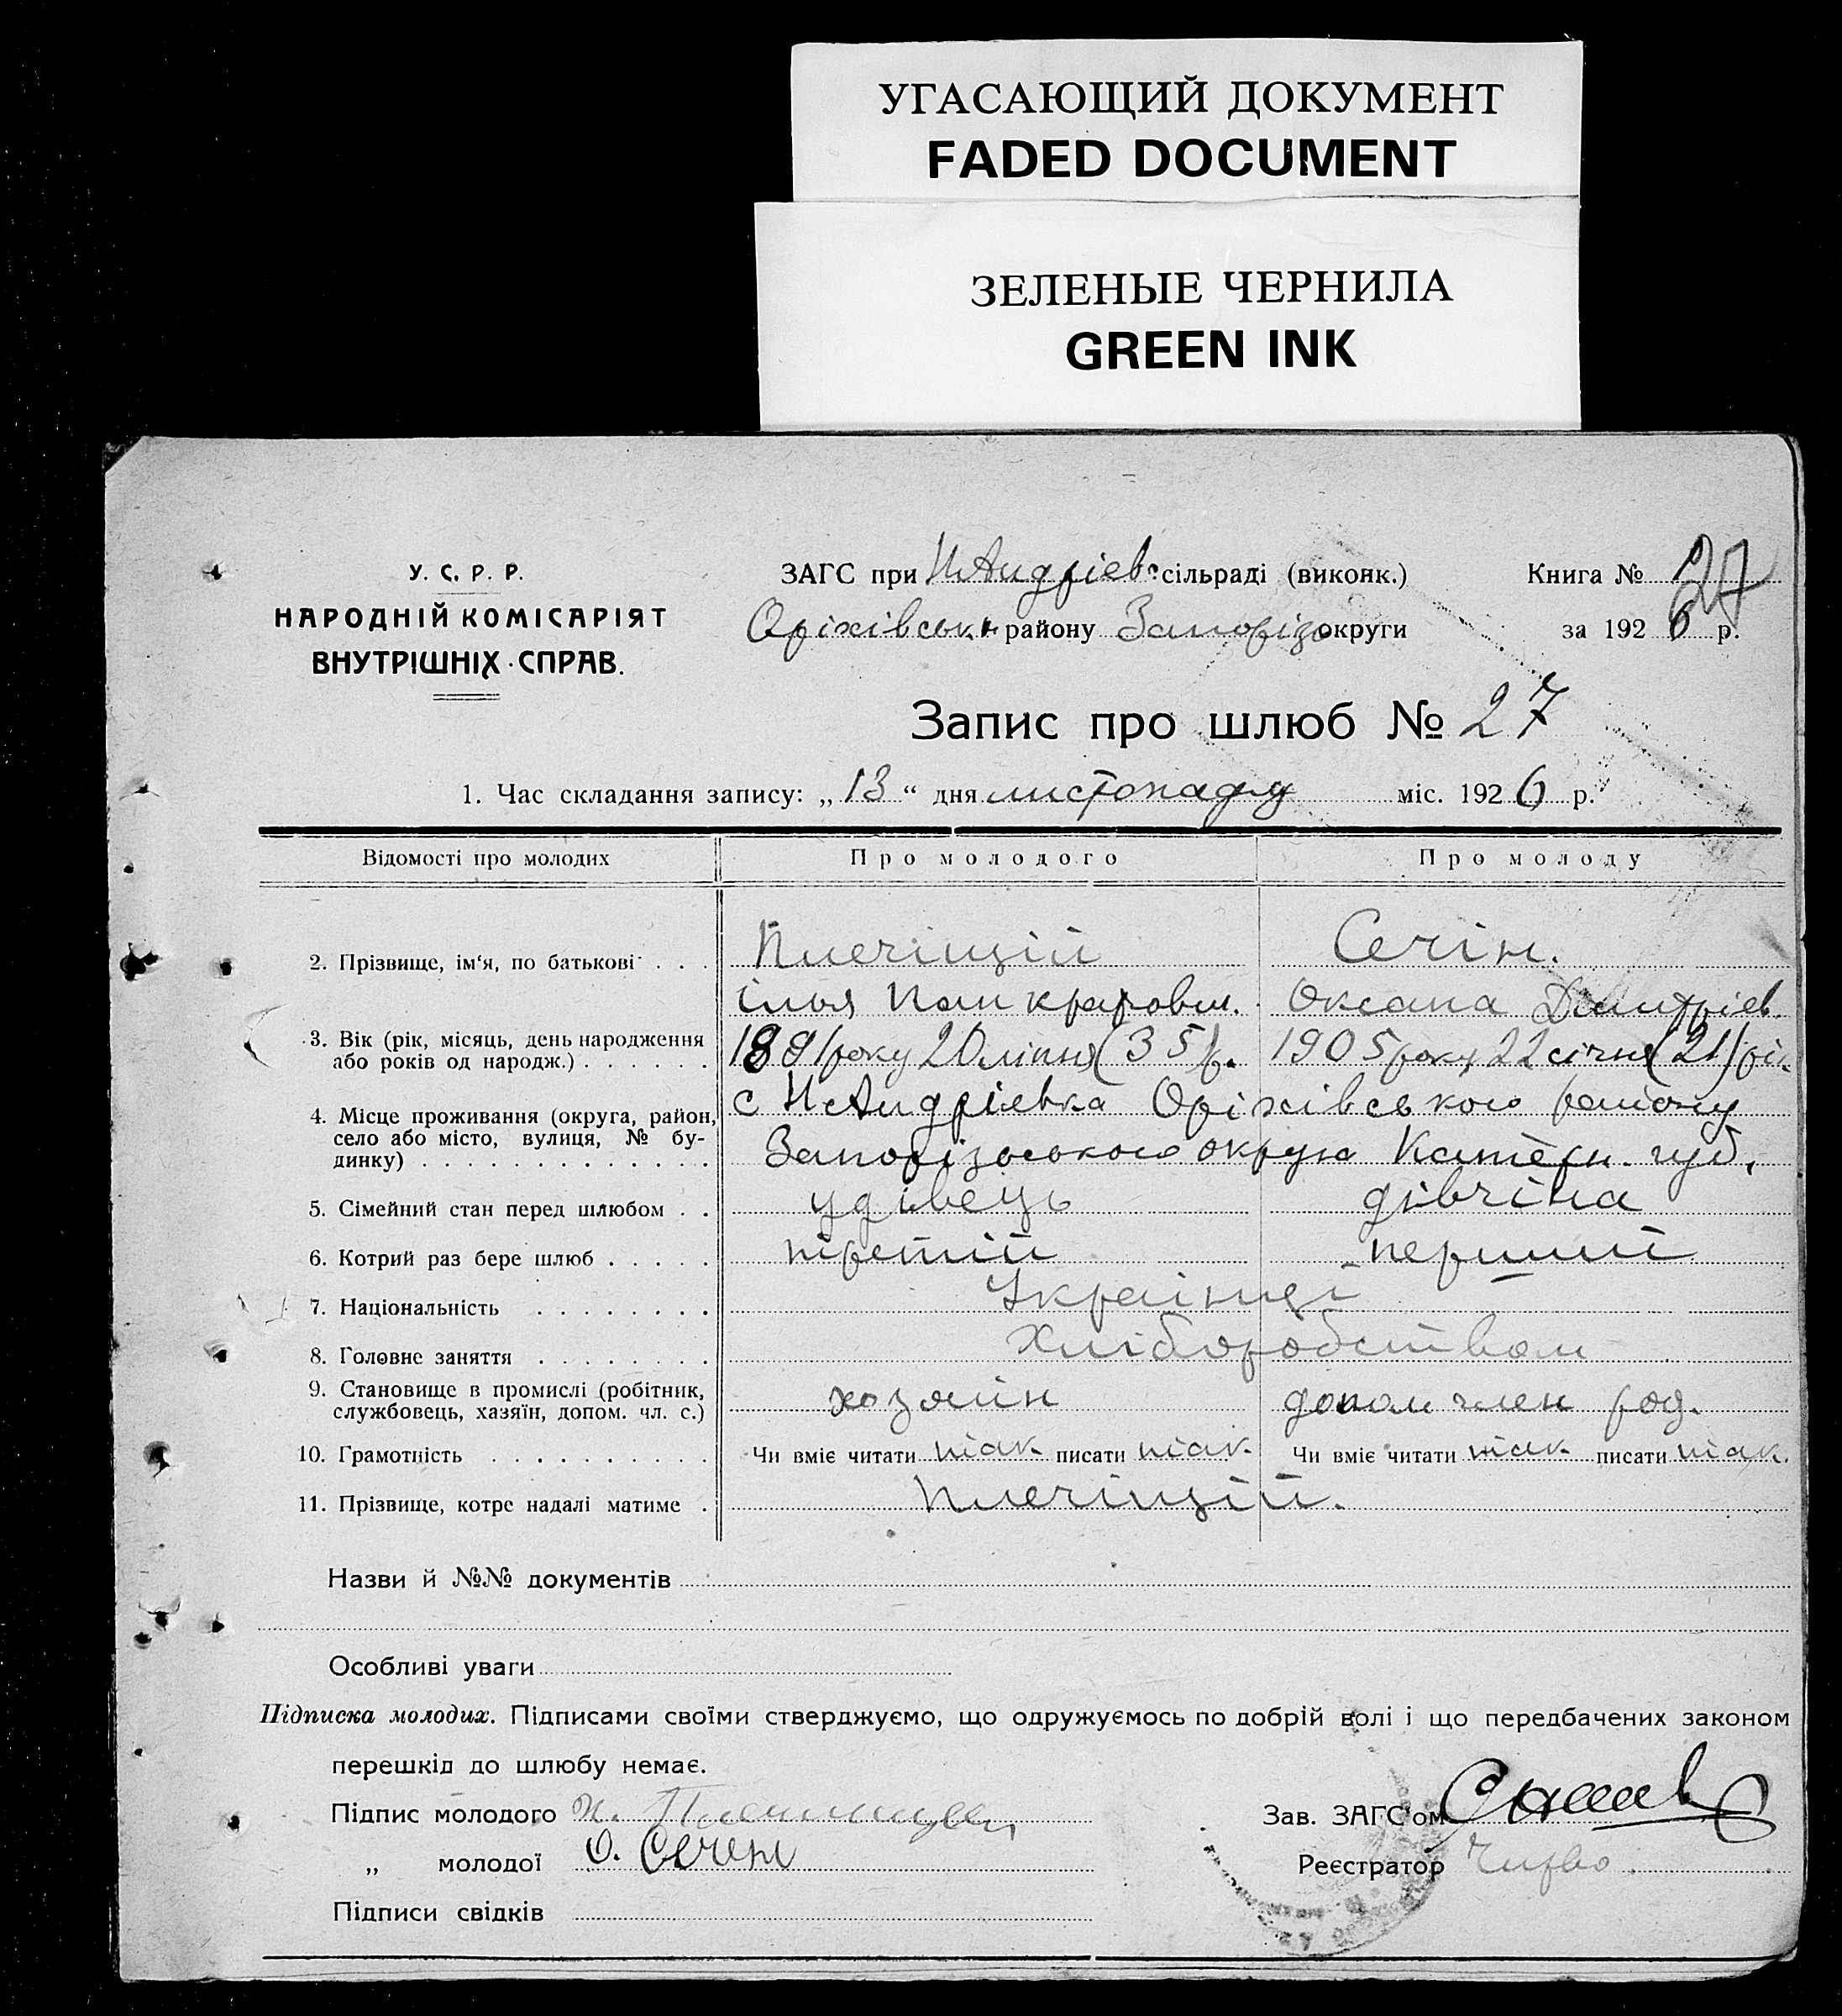 УГАСАЮЩИЙ ДОКУМЕНТ
FADED DOCUMENT
ЗЕЛЕНЫЕ ЧЕРНИЛА
GREEN INK
У. С. Р. Р.
НАРОДНІЙ КОМІСАРІЯТ
ВНУТРІШНІХ СПРАВ.
ЗАГС при Н Андріев. сільраді (виконк.)
Оріхівськ. району Запоріз. округи
Книга № 27
за 1926 р.
Запис про шлюб № 27
1. Час складання запису: „13“ дня листопаду міс. 1926 р.
Відомості про молодих Про молодого Про молоду
2. Прізвище, ім'я, по батькові . . . Плечіцій Сечін.
ілья Панкратович. Оксана Дмитріев.
3. Вік (рік, місяць, день народження 1891 року 20 ліпня (35) р. 1905 року 22 січня (21) рік
або років од народж.) . . . . . .
4. Місце проживання (округа, район, с Н Андріевка Оріхівського району
село або місто, вулиця, № бу-
динку) . . . . . . . . . . . . . Запорізського округа Катерн. губ.
5. Сімейний стан перед шлюбом . . удівець дівчіна
6. Котрий раз бере шлюб . . . . . третій перший
7. Національність . . . . . . . . Українці
8. Головне заняття . . . . . . . . Хліборобством
9. Становище в промислі (робітник, хозяин допом член род.
службовець, хазяїн, допом. чл. с.)
10. Грамотність . . . . . . . . . . Чи вміє читати так писати так Чи вміє читати так писати так.
11. Прізвище, котре надалі матиме . Плечіцій.
Назви й №№ документів
Особливі уваги
Підписка молодих. Підписами своїми стверджуємо, що одружуємось по добрій волі і що передбачених законом
перешкід до шлюбу немає.
Підпис молодого И.
Зав. ЗАГС'ом
„ молодої О. Сечен
Реєстратор
Підписи свідків